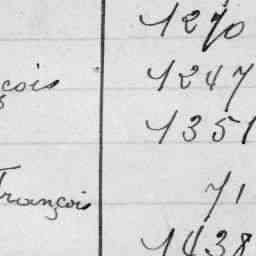 1270
çois 1247
1351
François 71
1438